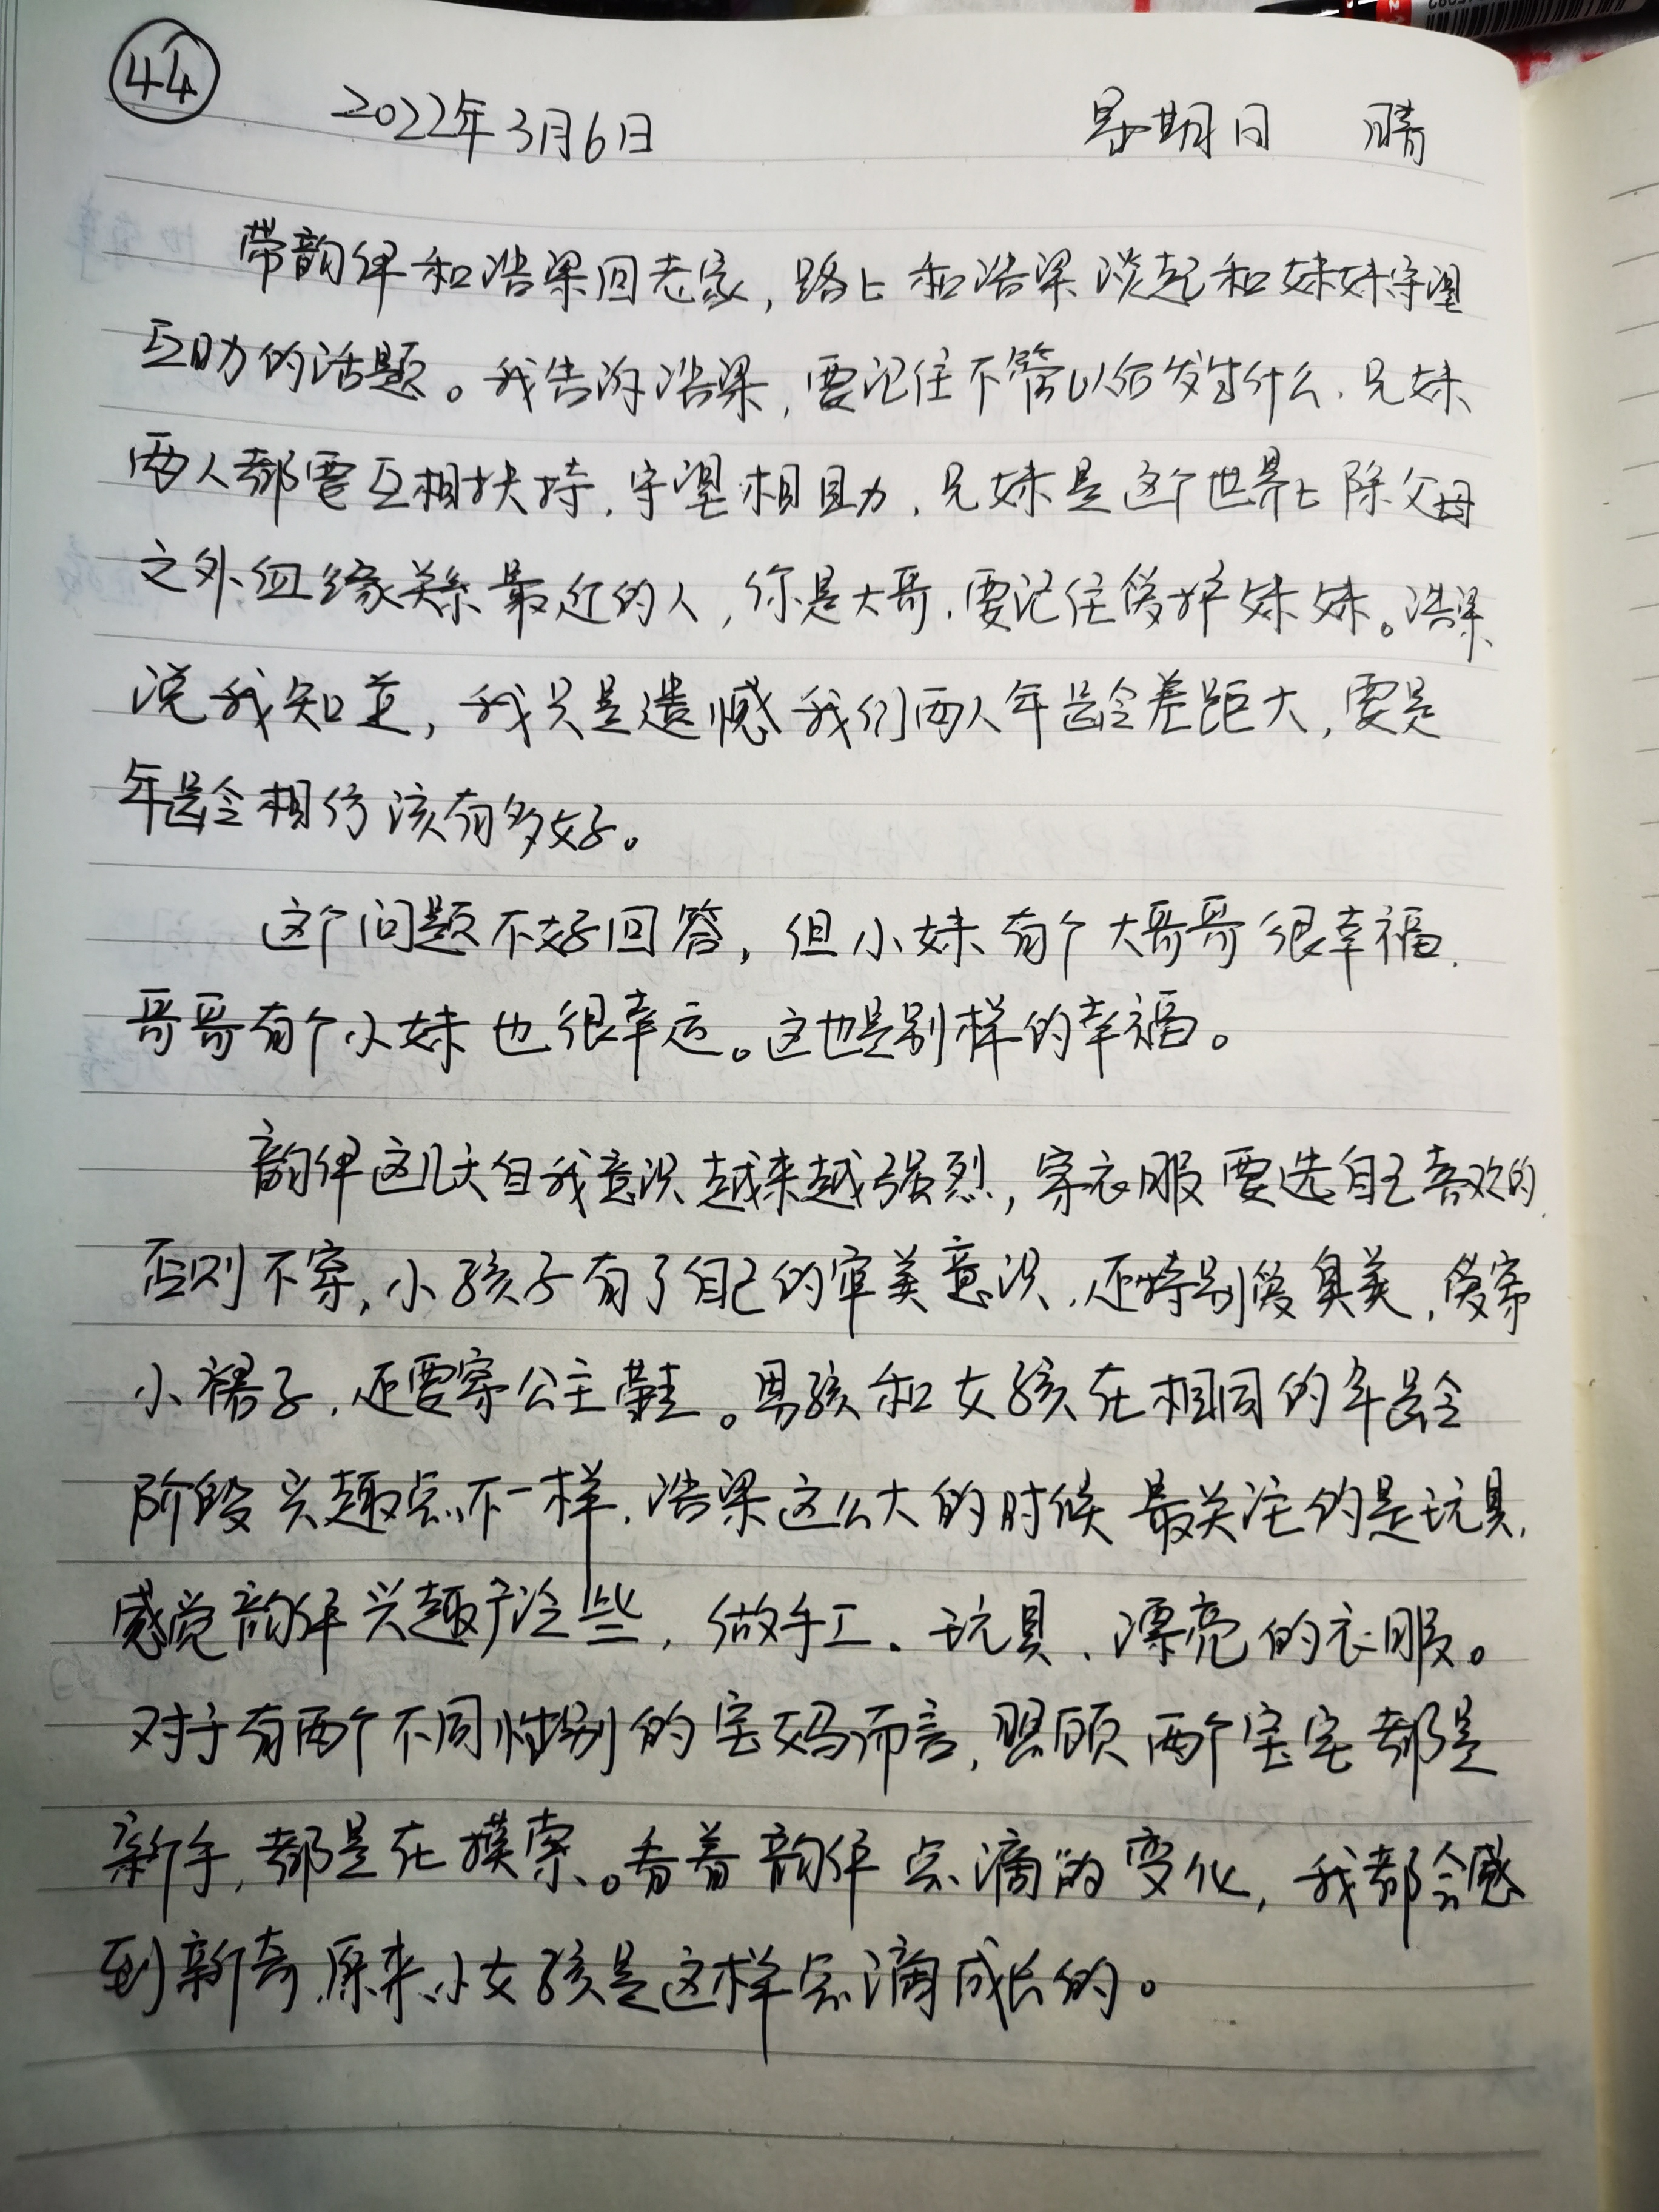 44
2022年3月6日 星期日 晴
带韵伊和浩梁回老家，路上和浩梁谈起和妹妹守望
互助的话题。我告诉浩梁，要记住不管以后发生什么，兄妹
两人都要互相扶持，守望相助，兄妹是这个世界上除父母
之外血缘关系最近的人，你是大哥，要记住爱护妹妹。浩梁
说我知道，我只是遗憾我们两人年龄差距大，要是
年龄相仿该有多好。
这个问题不好回答，但小妹有个大哥哥很幸福，
哥哥有个小妹也很幸运。这也是别样的幸福。
韵伊这几天自我意识越来越强烈，穿衣服要选自己喜欢的
否则不穿，小孩子有了自己的审美意识，还特别爱臭美，爱穿
小裙子，还要穿公主鞋。男孩和女孩在相同的年龄
阶段兴趣点不一样，浩梁这么大的时候最关注的是玩具，
感觉韵伊兴趣广泛些，做手工、玩具、漂亮的衣服。
对于有两个不同性别的宝妈而言，照顾两个宝宝都是
新手，都是在摸索。看着韵伊点滴的变化，我都会感
到新奇，原来小女孩是这样点滴成长的。